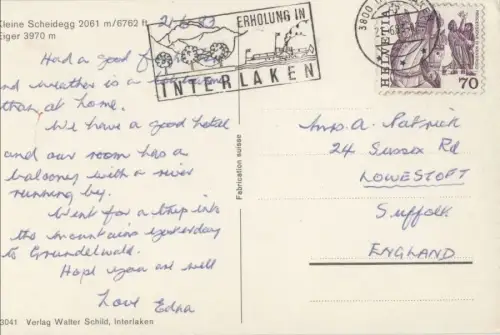 Kleine Scheidegg 2061 m/6762 ft
Eiger 3970 m
21.6.83
ERHOLUNG IN
INTERLAKEN
3800
HELVETIA
70
Had a good
and weather is a
than at home.
We have a good hotel
and our room has a
balcony with a river
running by.
Went for a trip into
the mountains yesterday
to Grundelwald.
Hope you are well
Love Edna
Fabrication suisse
Mrs. A. Patrick
24 Sussex Rd
LOWESTOFT
Suffolk
ENGLAND
3041 Verlag Walter Schild, Interlaken